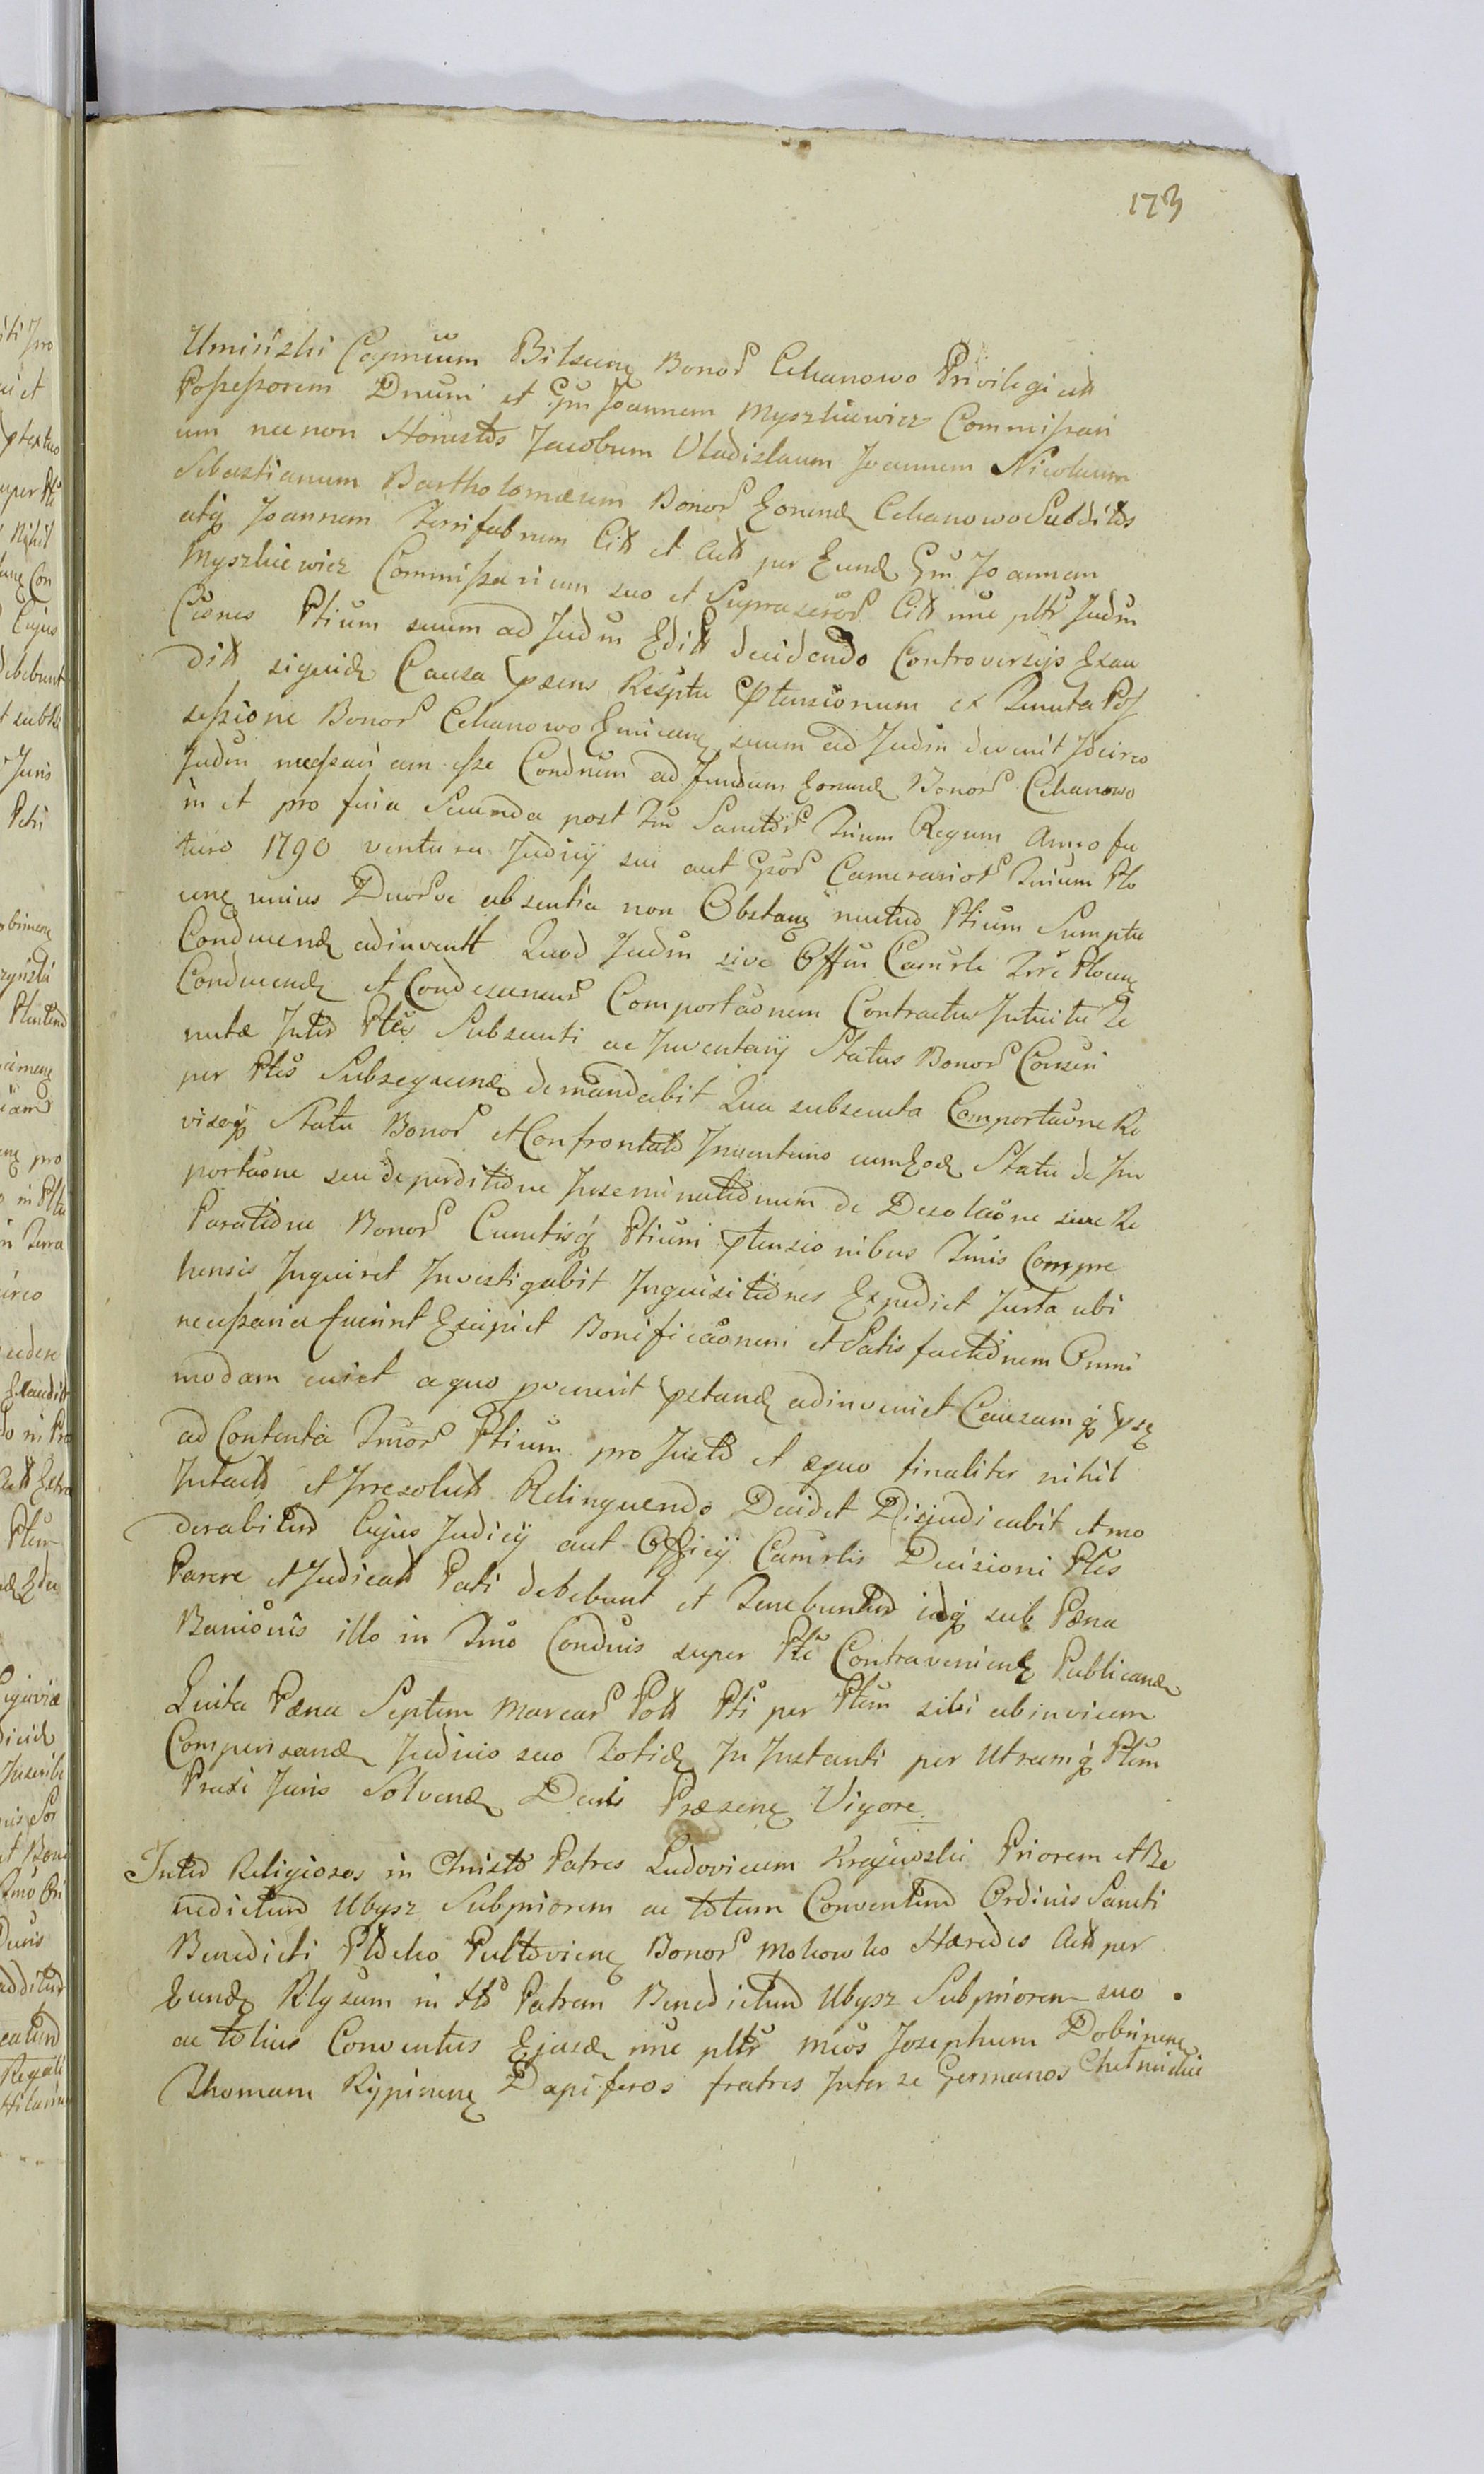 173
Umiński Capnūum Bilscenę Bonoꝝ Cekanowo Privilegiatt
Possessorem Dnum et Gm Joannem Myszkiewicz Commissari
um nec non Honestos Jacobum Vladislaum Joannem Nicolaum
Sebastianum Bartholomæum Bonoꝝ Eorund Cekanowo Subditos
atq Joannem Ferrifabrum Citt et Actt per Eund Gm Joannem
Myszkiewicz Commissarium suo et Suprascroꝝ Citt nne pltr Judm
Cisnes Ptium suum ad Judm Editt decidendo Controversijs Exau
ditt siquid Causa psens Resptu Ptensionum ex Tenuta Pos
sessione Bonoꝝ Cekanowo Emicanę suum ad Judm devenit Idcirco
Judm necssariam esse Condnem ad fundum Eorund Bonoꝝ Cekanowo
in et pro feria Secunda post Fm Sanctoꝝ Trium Regum Anno fu
turo 1790 ventura Judicij sui aut Gsoꝝ Camerarioꝝ Trium Plo
cenę unius Duorve absentia non Obstanę mutuo Ptium Sumptu
Conducend adinvenitt Quod Judm sive Offm Camrle Trre Plocenę
Conducend et Condescenens Comportaõnem Contractus Intuitu Te
nutæ Inter Ptes Subsecuti ac Inventarij Status Bonoꝝ Conscri
per Ptes Subsequend demandabit Qua subsecuta Comportaõne Re
visoq Statu Bonoꝝ et Confrontato Inventario cum Eod Statu de Im
portaõne seu deperditione Inseminationum de Desolaõne sive Re
Paratione Bonoꝝ Cunctisq Ptium ptensionibus Tmis Compre
hensis Inquiret Investigabit Inquisitiones Expediet Jurta ubi
necessaria fuerint Excipiet Bonificaõnem et Satisfactionem Omni
modam cuiet a quo pvenerit pstand adinveniet Causamq psę
ad Contenta Tmoꝝ Ptium pro Justo et æquo finaliter nihil
Intactt et Irresolutt Relinquendo Decidet Disjudicabit et mo
derabitur Cujus Judicij aut Officij Camrlis Decisioni Ptes
Parere et Judicatt Pati debebunt et Tenebuntur idq sub Pæna
Banionis illo in Tmo Condnis super Pte Contravenienę Publicand
Luita Pæna Septem Marcaꝝ Pott Pti per Ptem sibi abinvicem
Compensand Judicio suo Totid In Instanti per Utramq Ptem
Praxi Juris Solvend Dcris Præsenę Vigore.
Inter Religiosos in Christo Patres Ludovicum Krajewski Priorem et Be
nedictum Ubysz Subpriorem ac totum Conventum Ordinis Sancti
Benedicti Plocko Pultovienę Bonoꝝ Mokowko Hæredes Actt per
Eund Rlgsum in Xto Patrem Benedictum Ubysz Subpriorem suo
ac totius Conventus Ejusd nne pltr Mcos Josephum Dobrinenę
Thomam Rypinenę Dapiferos fratres Inter se Germanos Chełmickie